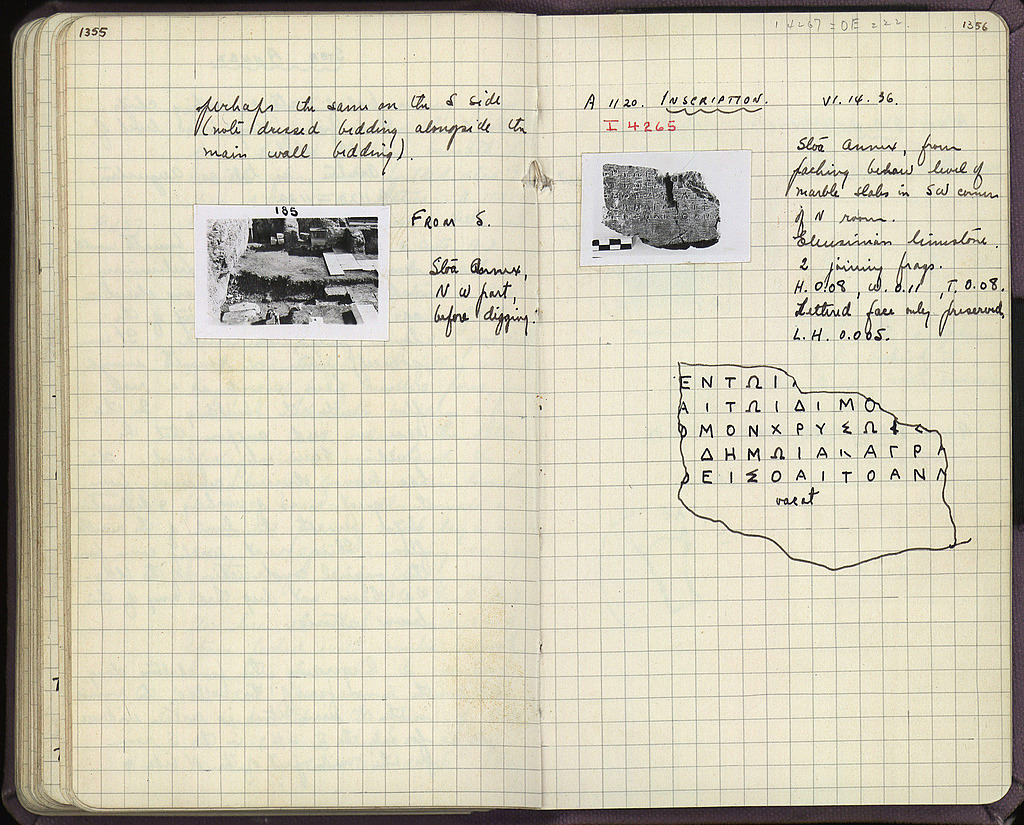 1355
perhaps the same on the S side
(note dressed bedding alongside the
main wall bedding).
185
From S.
Stoa Annex,
N W part,
before digging.
1356
I 4267 = OE 222.
A 1120. INSCRIPTION. VI. 14. 36.
I 4265
Stoa Annex, from
packing below level of
marble slabs in SW corner
of N room.
Eleusinian limestone.
2 joining frags.
H. 0.08, W. 0.11, T. 0.08.
Lettered face only preserved.
L.H. 0.005.
ΕΝΤΩΙ
ΑΙΤΩΙΔΙΜΟ
ΜΟΝΧΡΥΣΩ
ΔΗΜΩΙΑΚΑΓΡ
ΕΙΣΟΑΙΤΟΑΝ
vacat